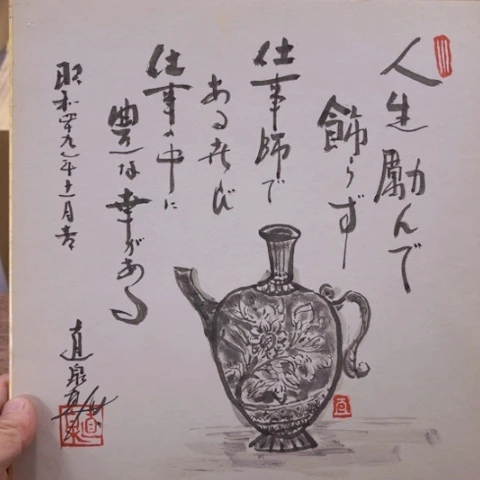 人生励んで
飾らず
仕事師で
ある喜び
仕事の中に
豊な幸がある
昭和四十九年十一月吉
直泉
直